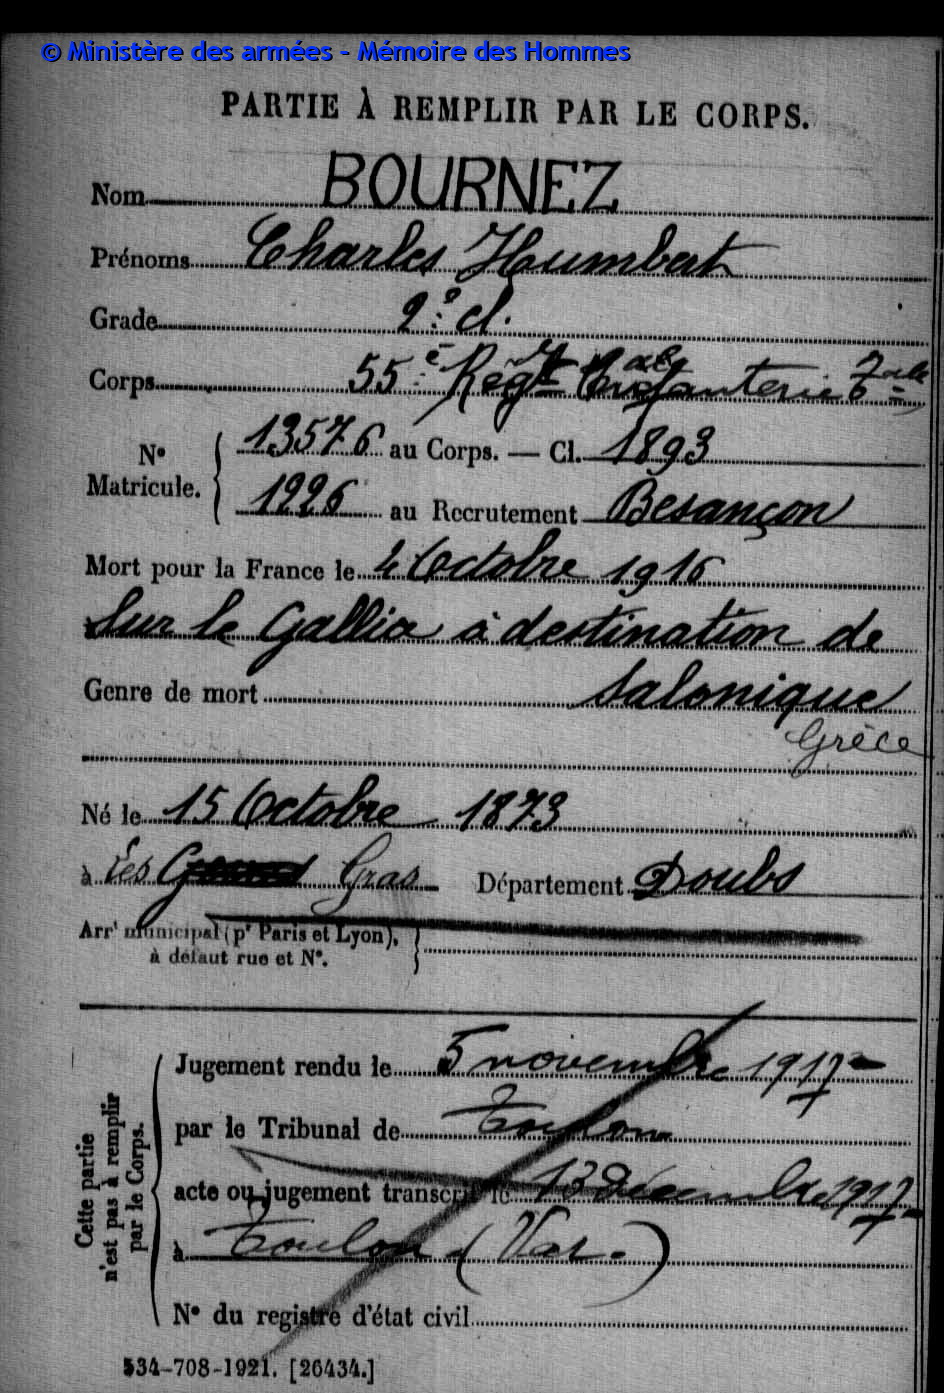 © Ministère des armées - Mémoire des Hommes
PARTIE À REMPLIR PAR LE CORPS.
Nom BOURNEZ
Prénoms Charles Humbert
Grade 2e cl.
Corps 55e Régt Infanterie
N° Matricule. 13576 au Corps. — Cl. 1893
1226 au Recrutement Besançon
Mort pour la France le 4 Octobre 1916
Sur le Gallia à destination de
Genre de mort Salonique
Grèce
Né le 15 Octobre 1873
à Les Gras Département Doubs
Arrt municipal (pr Paris et Lyon),
à défaut rue et N°.
Cette partie n'est pas à remplir par le Corps.
Jugement rendu le 5 novembre 1917
par le Tribunal de Toulon
acte ou jugement transcrit le 13 Décembre 1917
à Toulon (Var.)
N° du registre d'état civil
534-708-1921. [26434.]